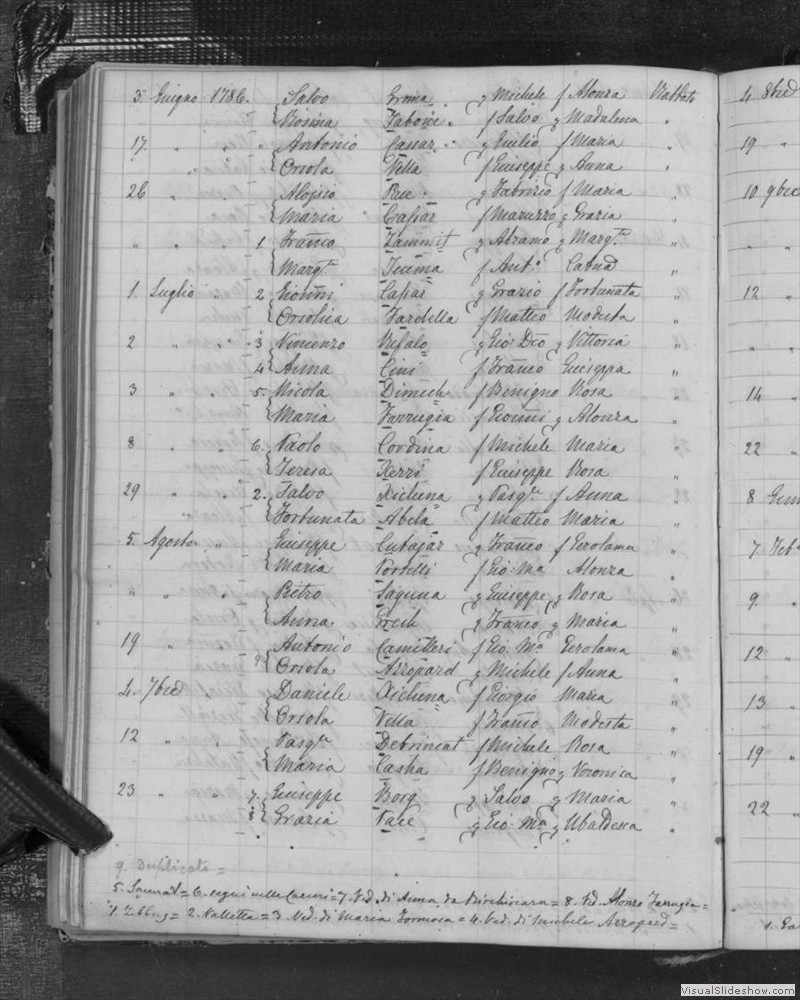 3 Giugno 1786. Salvo Grima g Michele f Alonza Rabbato
Rosina Fabone f Salvo g Madalena "
17. " " " Antonio Cassar g Giulio f Maria "
" Orsola Vella f Giuseppe g Anna "
26 " " Aloisio g Fabrizio f Maria "
Maria Caspar f g Grazia "
" " 1. Franco Zammit g Abramo g Margta "
Margta f Anto "
1. Luglio " 2 Gioanni Caspar g Grazio f Fortunata "
Orsolica Fardella f Matteo Modesta "
2 " " 3 Vincenzo g Gio: Dio g Vittoria "
4 Anna Cini f Franco Giuseppa "
3 " " 5. Nicola Dimech f Benigno Rosa "
Maria Farrugia f Gioanni g Alonza "
8 " 6. Paolo Cordina f Michele Maria "
Teresa Xerri f Giuseppe Rosa "
29 " " 2. Salvo Xicluna g Pasqle f Anna "
" Fortunata Abela f Matteo Maria "
5. Agosto " Giuseppe Cutajar g Franco f Gerolama "
Maria Portelli f Gio: Ma Alonza "
" " Pietro Saguna g Giuseppe g Rosa "
Anna g Franco g Maria "
19 " Antonio Camilleri f Gio: Ma Gerolama "
9 Orsola Arropard g Michele f Anna "
4. 7bre " Daniele Xicluna f Giorgio Maria "
Orsola Vella f Franco Modesta "
12 " " Pasqle Debrincat f Michele Rosa "
Maria Casha f Benigno g Veronica "
23 " " 7. Giuseppe Borg g Salvo g Maria "
8 Grazia Pace g Gio: Ma g Ubaldesca "
9. Duplicato =
5. Sannat = 6. segui nelle Curcuri = 7. Ved. di Anna da Birchircara = 8. Vd. Alonzo Farrugia =
1. Zebbug = 2. Valletta = 3. Ved. di Maria Formosa = 4. Ved. di Michele Arropard =
4 8bre
19 "
10 9bre
" "
12 "
" "
14 "
22 "
8
7 Feb
9. "
12 "
13 "
19 "
22 "
VisualSlideshow.com